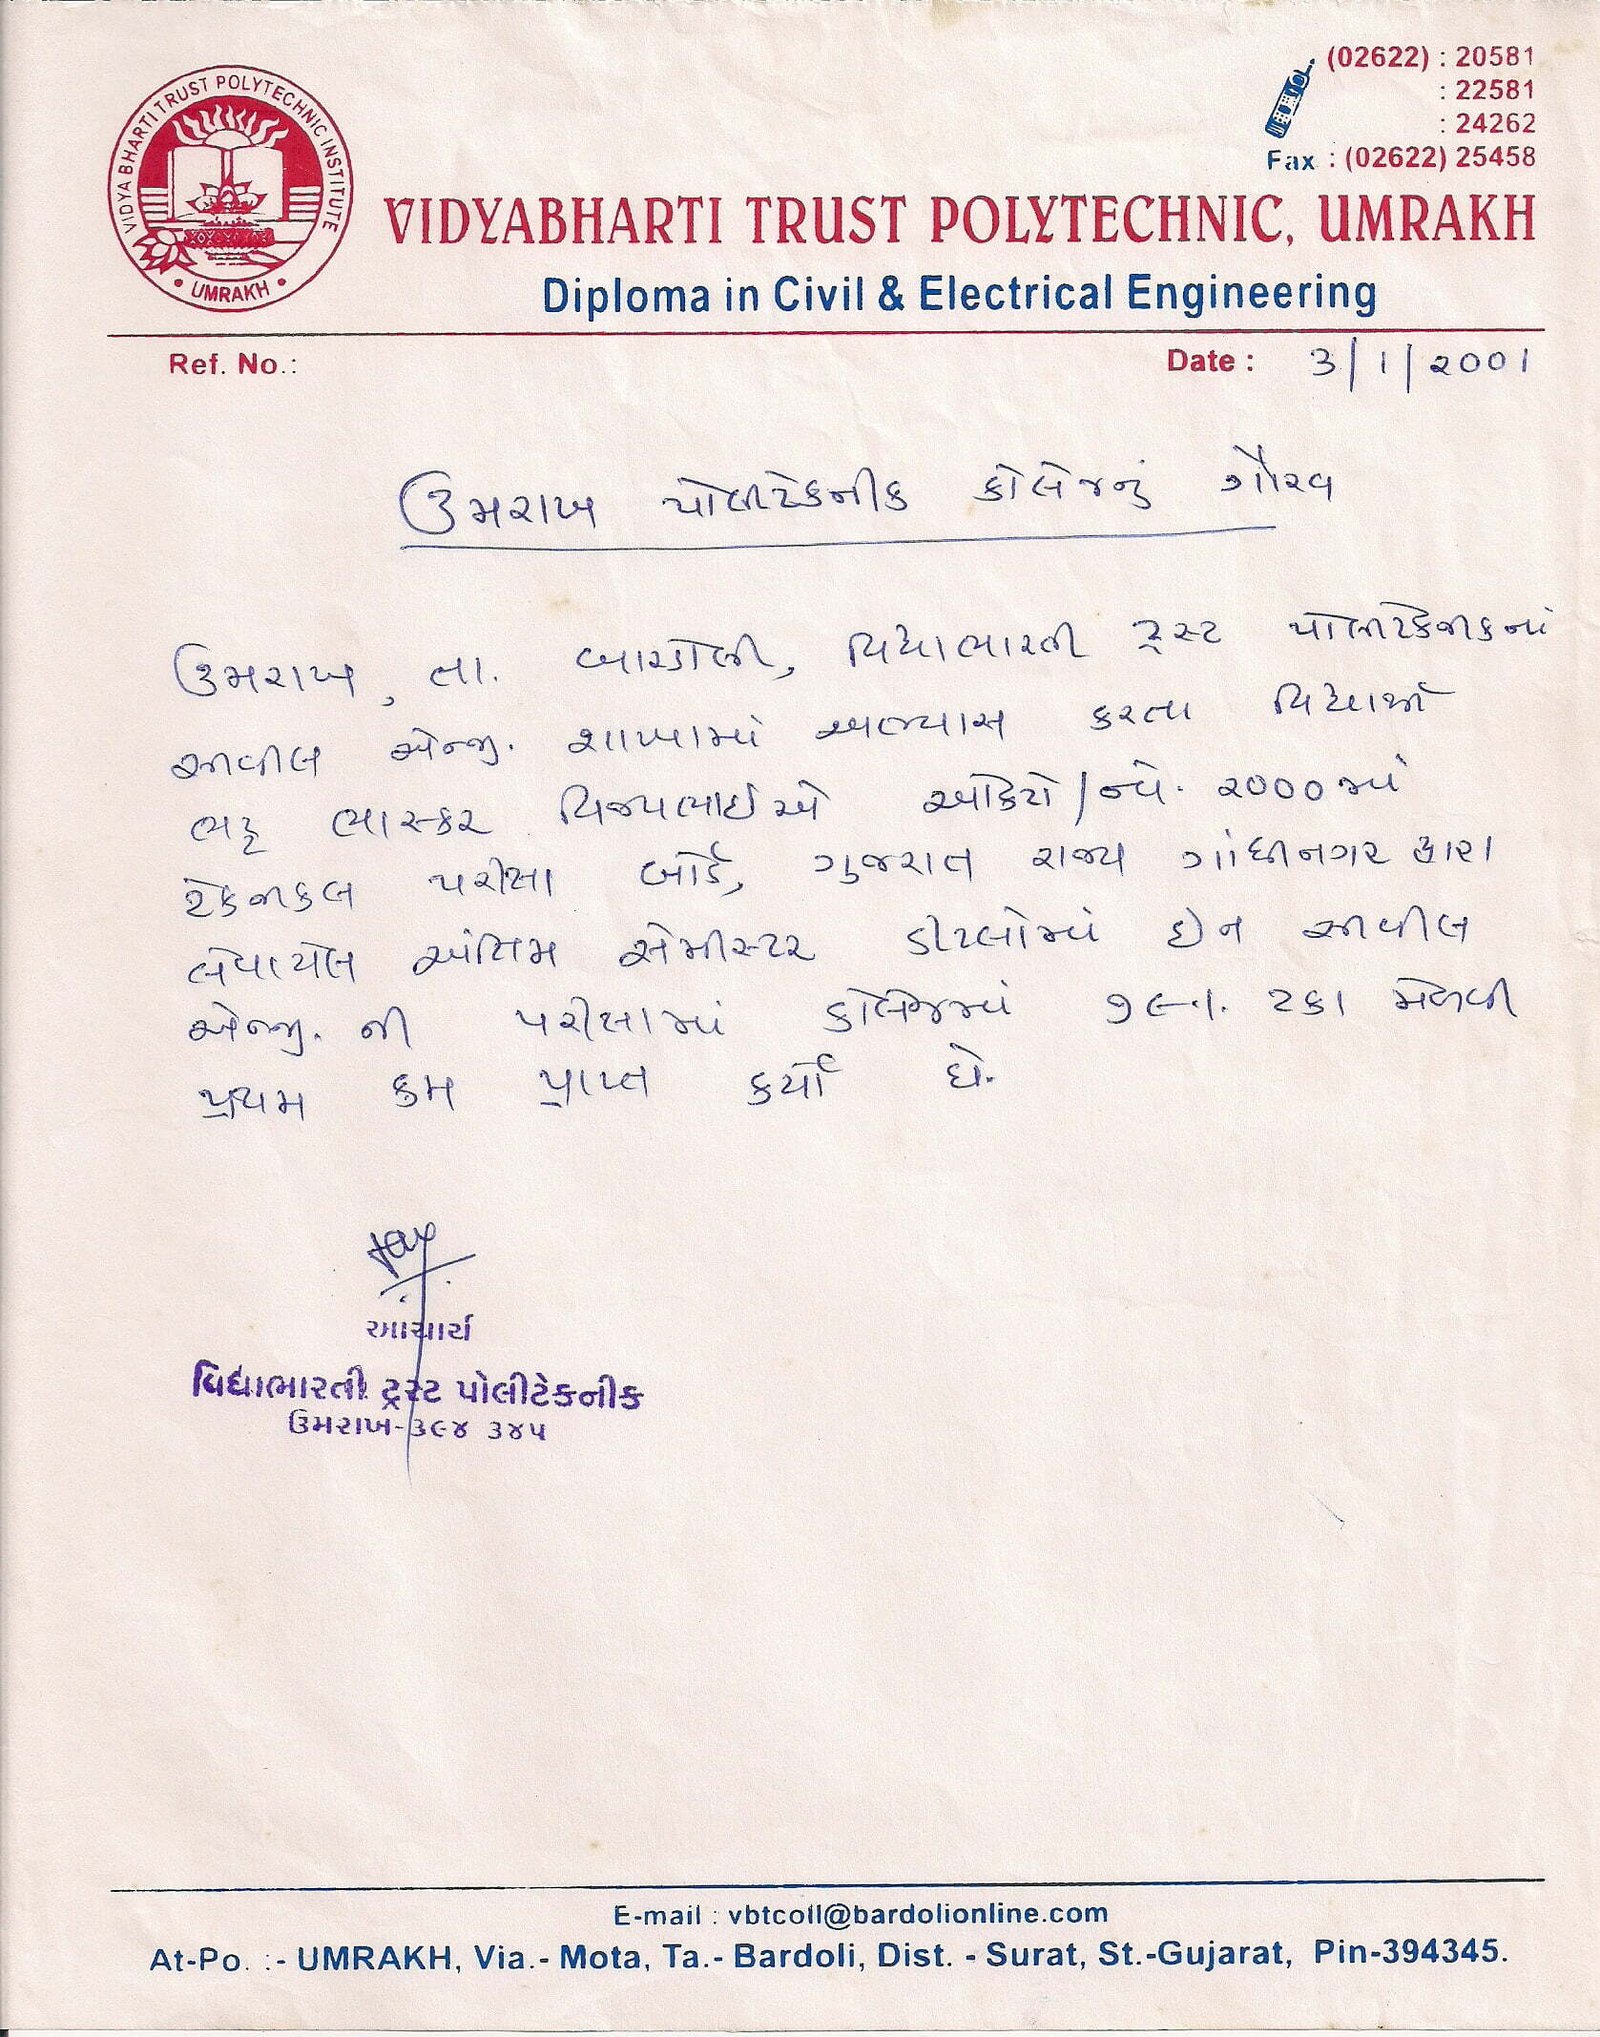 VIDYA BHARTI TRUST POLYTECHNIC INSTITUTE
• UMRAKH •
(02622) : 20581
: 22581
: 24262
Fax : (02622) 25458
VIDYABHARTI TRUST POLYTECHNIC, UMRAKH
Diploma in Civil & Electrical Engineering
Ref. No.:
Date : 3/1/2001
ઉમરાખ પોલીટેકનીક કોલેજનું ગૌરવ
ઉમરાખ, તા. બારડોલી, વિદ્યાભારતી ટ્રસ્ટ પોલીટેકનીકનાં
સીવીલ એન્જી. શાખામાં અભ્યાસ કરતા વિદ્યાર્થી
ભટ્ટ ભાસ્કર વિજયભાઈએ ઓકટો/નવે. ૨૦૦૦માં
ટેકનીકલ પરીક્ષા બોર્ડ, ગુજરાત રાજ્ય ગાંધીનગર દ્વારા
લેવાયેલ અંતિમ સેમીસ્ટર ડીપ્લોમાં ઈન સીવીલ
એન્જી. ની પરીક્ષામાં કોલેજમાં ૭૯.૧. ટકા મેળવી
પ્રથમ ક્રમ પ્રાપ્ત કર્યો છે.
આચાર્ય
વિદ્યાભારતી ટ્રસ્ટ પોલીટેકનીક
ઉમરાખ-૩૯૪ ૩૪૫
E-mail : vbtcoll@bardolionline.com
At-Po. :- UMRAKH, Via.- Mota, Ta.- Bardoli, Dist. - Surat, St.-Gujarat, Pin-394345.